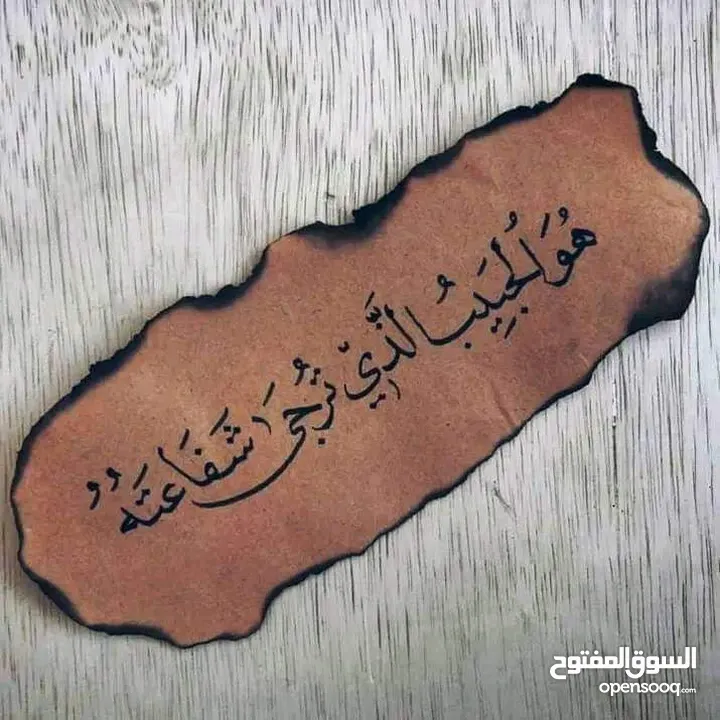 هُوَ الْحَبِيبُ الَّذِي تُرْجَى شَفَاعَتُهُ
السوق المفتوح
opensooq.com